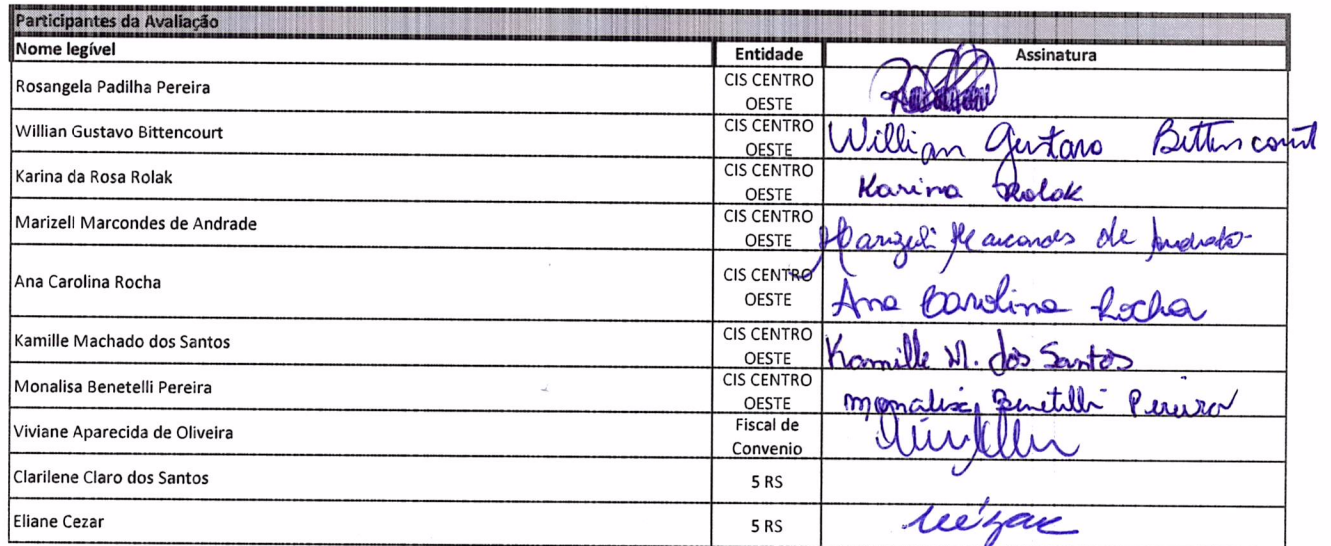 Participantes da Avaliação
Nome legível Entidade Assinatura
Rosangela Padilha Pereira CIS CENTRO OESTE
Willian Gustavo Bittencourt CIS CENTRO OESTE Willian Gustavo Bittencourt
Karina da Rosa Rolak CIS CENTRO OESTE Karina Rolak
Marizell Marcondes de Andrade CIS CENTRO OESTE Marizeli Marcondes de Andrade
Ana Carolina Rocha CIS CENTRO OESTE Ana Carolina Rocha
Kamille Machado dos Santos CIS CENTRO OESTE Kamille M. dos Santos
Monalisa Benetelli Pereira CIS CENTRO OESTE Monalisa Benetelli Pereira
Viviane Aparecida de Oliveira Fiscal de Convenio
Clarilene Claro dos Santos 5 RS
Eliane Cezar 5 RS